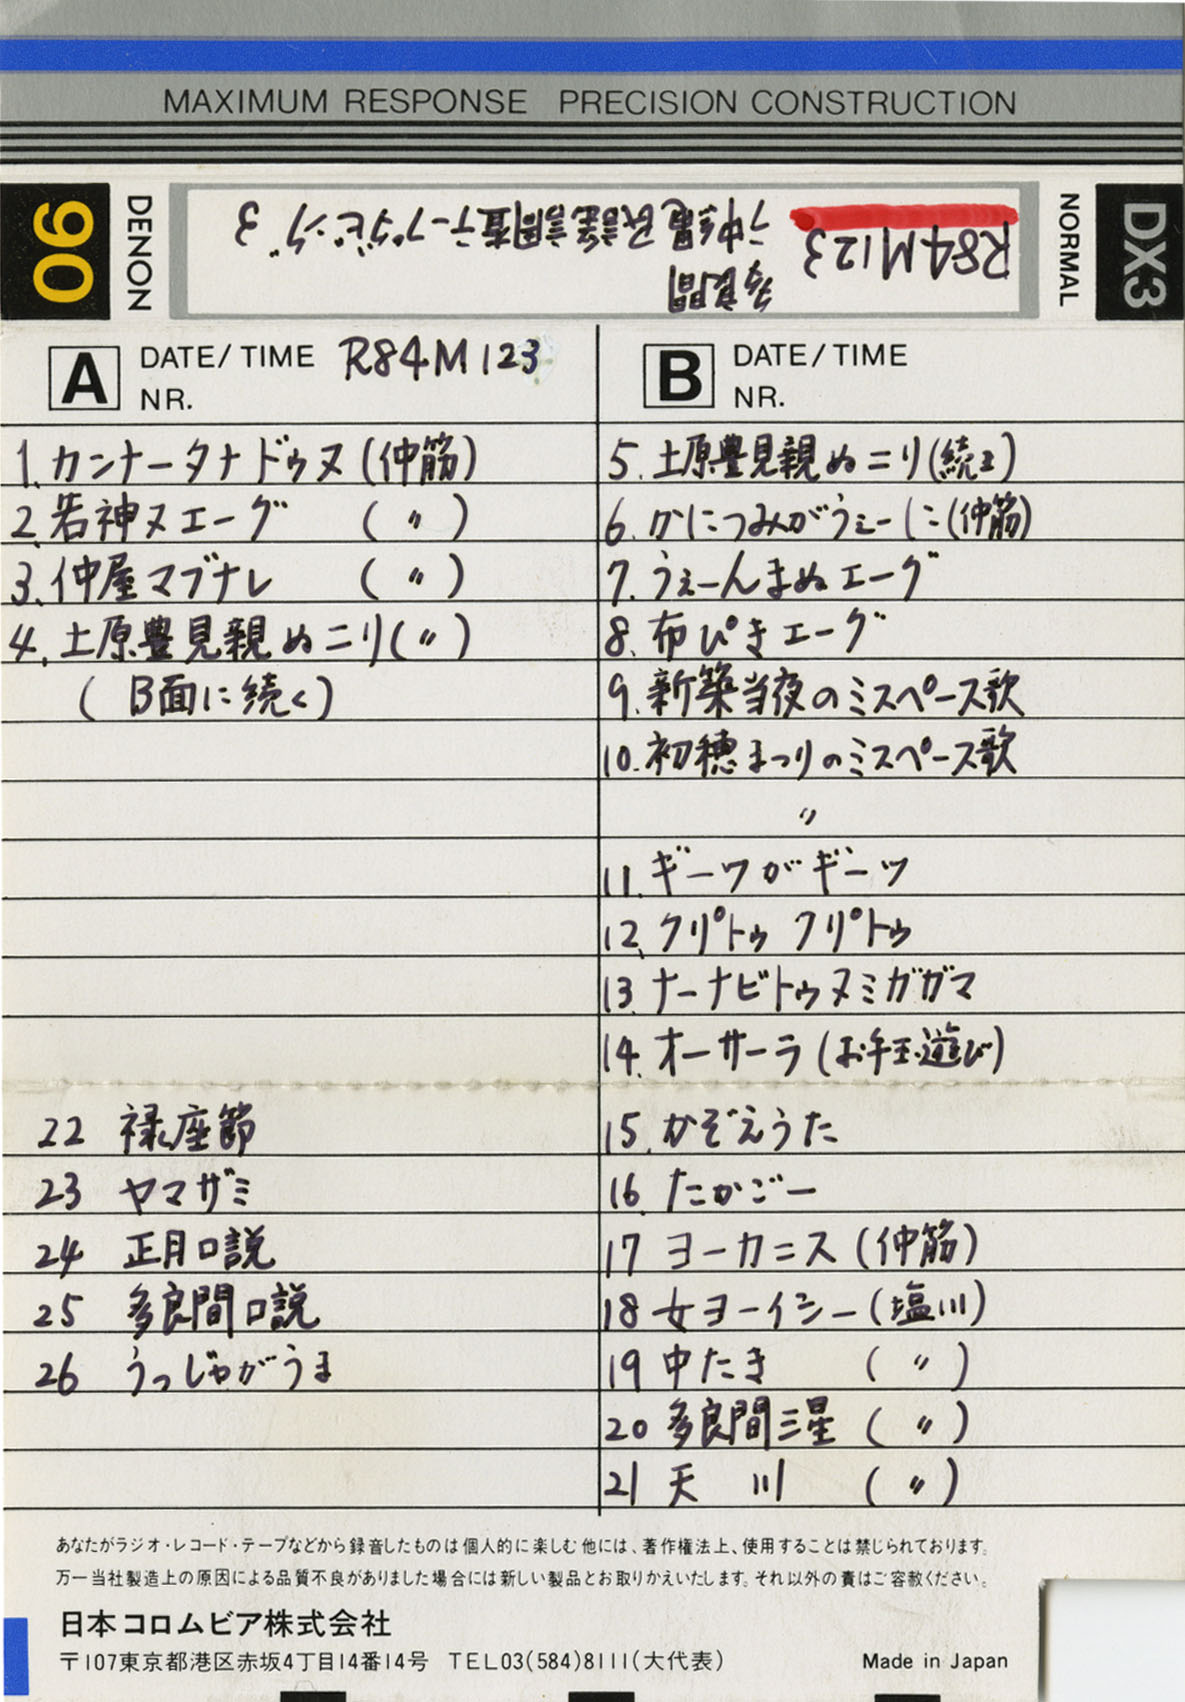 MAXIMUM RESPONSE PRECISION CONSTRUCTION
90
DENON
R84M123
沖縄民謡調査テープダビング 3
多良間
NORMAL
DX3
A DATE/TIME R84M123
NR.
1. カンナータナドゥヌ (仲筋)
2. 若神ヌエーグ (〃)
3. 仲屋マブナレ (〃)
4. 土原豊見親ぬニリ (〃)
( B面に続く )
22 禄座節
23 ヤマザミ
24 正月口説
25 多良間口説
26 うっじゃがうま
B DATE/TIME
NR.
5. 土原豊見親ぬニリ (続き)
6. かにつみがうぇーに (仲筋)
7. うぇーんまぬエーグ
8. 布ぴきエーグ
9. 新築当夜のミスペース歌
10. 初穂まつりのミスペース歌
〃
11. ギーヮがギーッ
12. クリ゚トゥ クリ゚トゥ
13. ナーナビトゥヌミガガマ
14. オーサーラ (お手玉遊び)
15. かぞえうた
16. たかごー
17 ヨーカニス (仲筋)
18 女ヨーイシー (塩川)
19 中たき (〃)
20 多良間三星 (〃)
21 天 川 (〃)
あなたがラジオ・レコード・テープなどから録音したものは個人的に楽しむ他には、著作権法上、使用することは禁じられております。
万一当社製造上の原因による品質不良がありました場合には新しい製品とお取りかえいたします。それ以外の責はご容赦ください。
日本コロムビア株式会社
〒107東京都港区赤坂4丁目14番14号 TEL03(584)8111(大代表)
Made in Japan